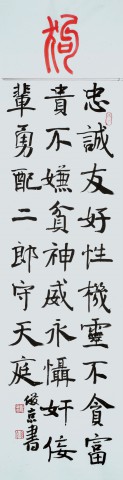 狗
忠誠友好性機靈不貪富
貴不嫌貧神威永懾奸佞
輩勇配二郎守天庭
俊京書